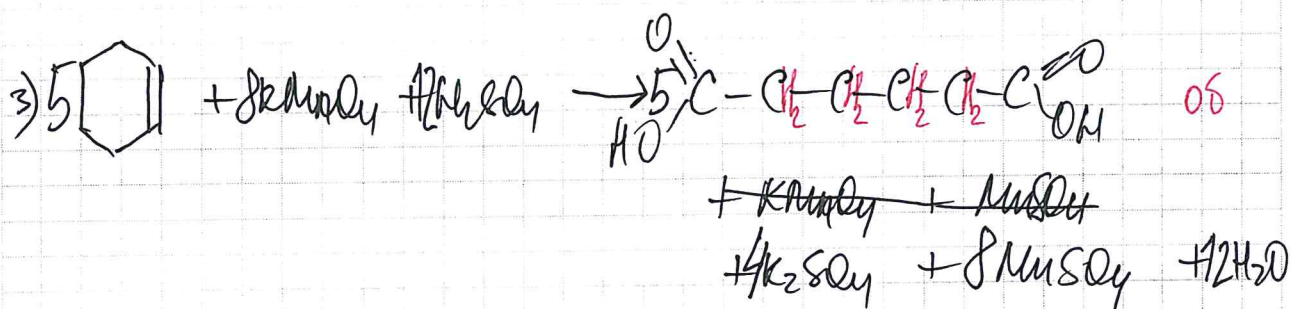 3) 5 + 8KMnO4 + 12H2SO4 → 5 HO-C(=O) - CH2 - CH2 - CH2 - CH2 - C(=O)OH 0б
+ KMnO4 + MnSO4
+ 4K2SO4 + 8MnSO4 + 12H2O